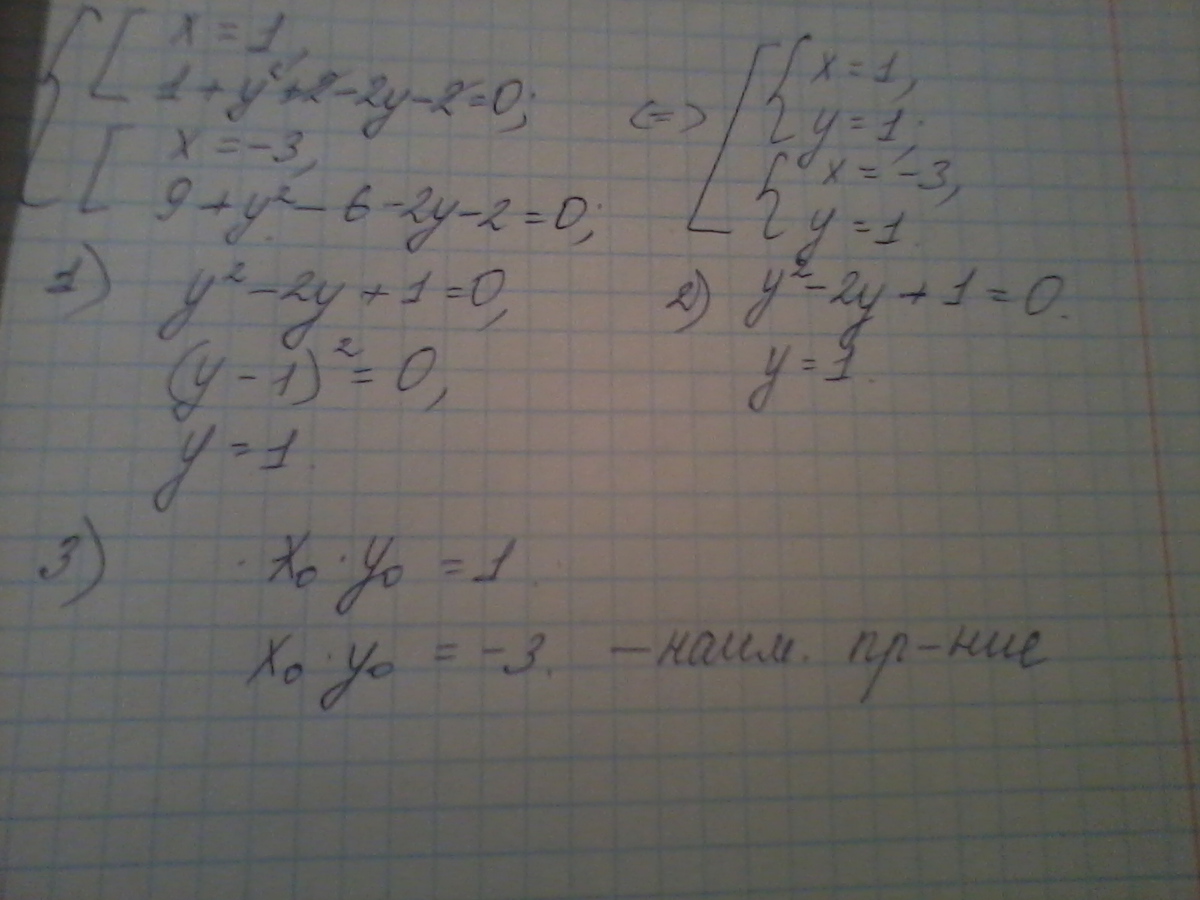 x = 1,
1 + y² + 2 - 2y - 2 = 0;
x = -3,
9 + y² - 6 - 2y - 2 = 0;
<=>
x = 1,
y = 1;
x = -3,
y = 1.
1) y² - 2y + 1 = 0,
(y - 1)² = 0,
y = 1.
2) y² - 2y + 1 = 0.
y = 1.
3) x₀ · y₀ = 1.
x₀ · y₀ = -3. — наим. пр-ние